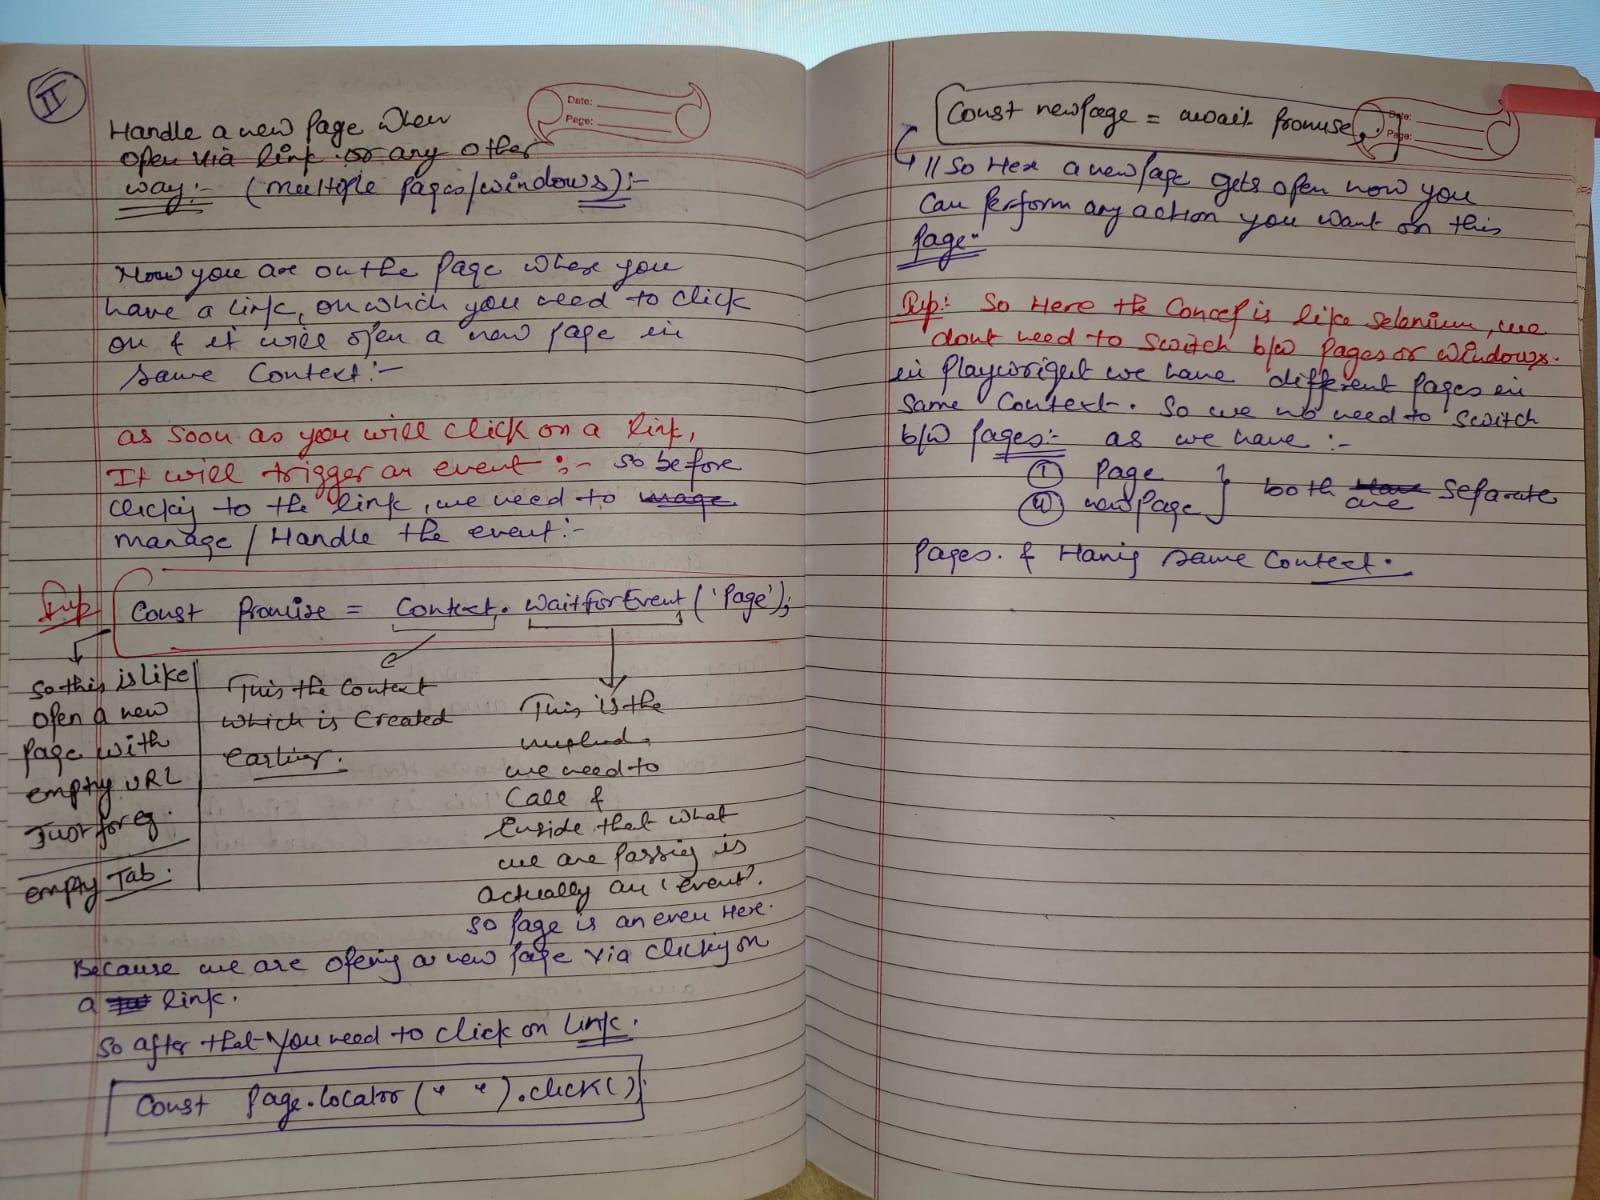 II
Date:
Page:
Handle a new Page when
open via link or any other
way:- (multiple Pages/windows):-
Now you are on the Page where you
have a link, on which you need to click
on & it will open a new page in
same Context:-
as soon as you will click on a link,
It will trigger an event :- so before
clicking to the link, we need to
manage / Handle the event:-
Imp
Const Promise = Context. WaitForEvent ('Page');
So this is like
open a new
Page with
empty URL
Just for eg.
empty Tab.
This the Context
which is Created
earlier.
This is the
method
we need to
Call &
Inside that what
we are Passing is
actually an 'event'.
so Page is an even Here.
Because we are opening a new page via clicking on
a link.
So after that You need to click on link.
Const Page.locator (" ").click()
Date:
Page:
Const newPage = await Promise;
// So Her a new Page gets open now you
Can Perform any action you want on this
Page.
Imp: So Here the Concep is like Selenium, we
dont need to switch b/w Pages or windows.
in Playwright we have different Pages in
Same Context. So we no need to switch
b/w Pages:- as we have :-
(I) Page
(II) newPage } both are Separate
Pages. & Having same Context.